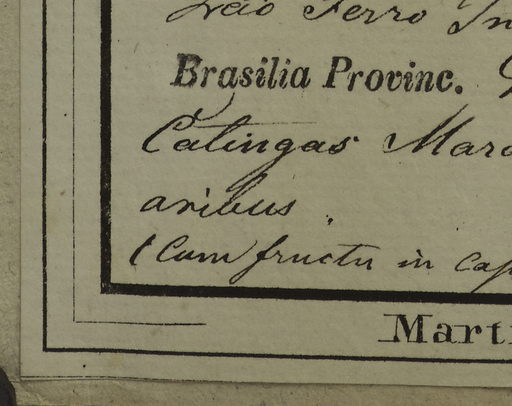 Ferro
Brasilia Provinc.
Catingas
aribus.
(Cum fructu in